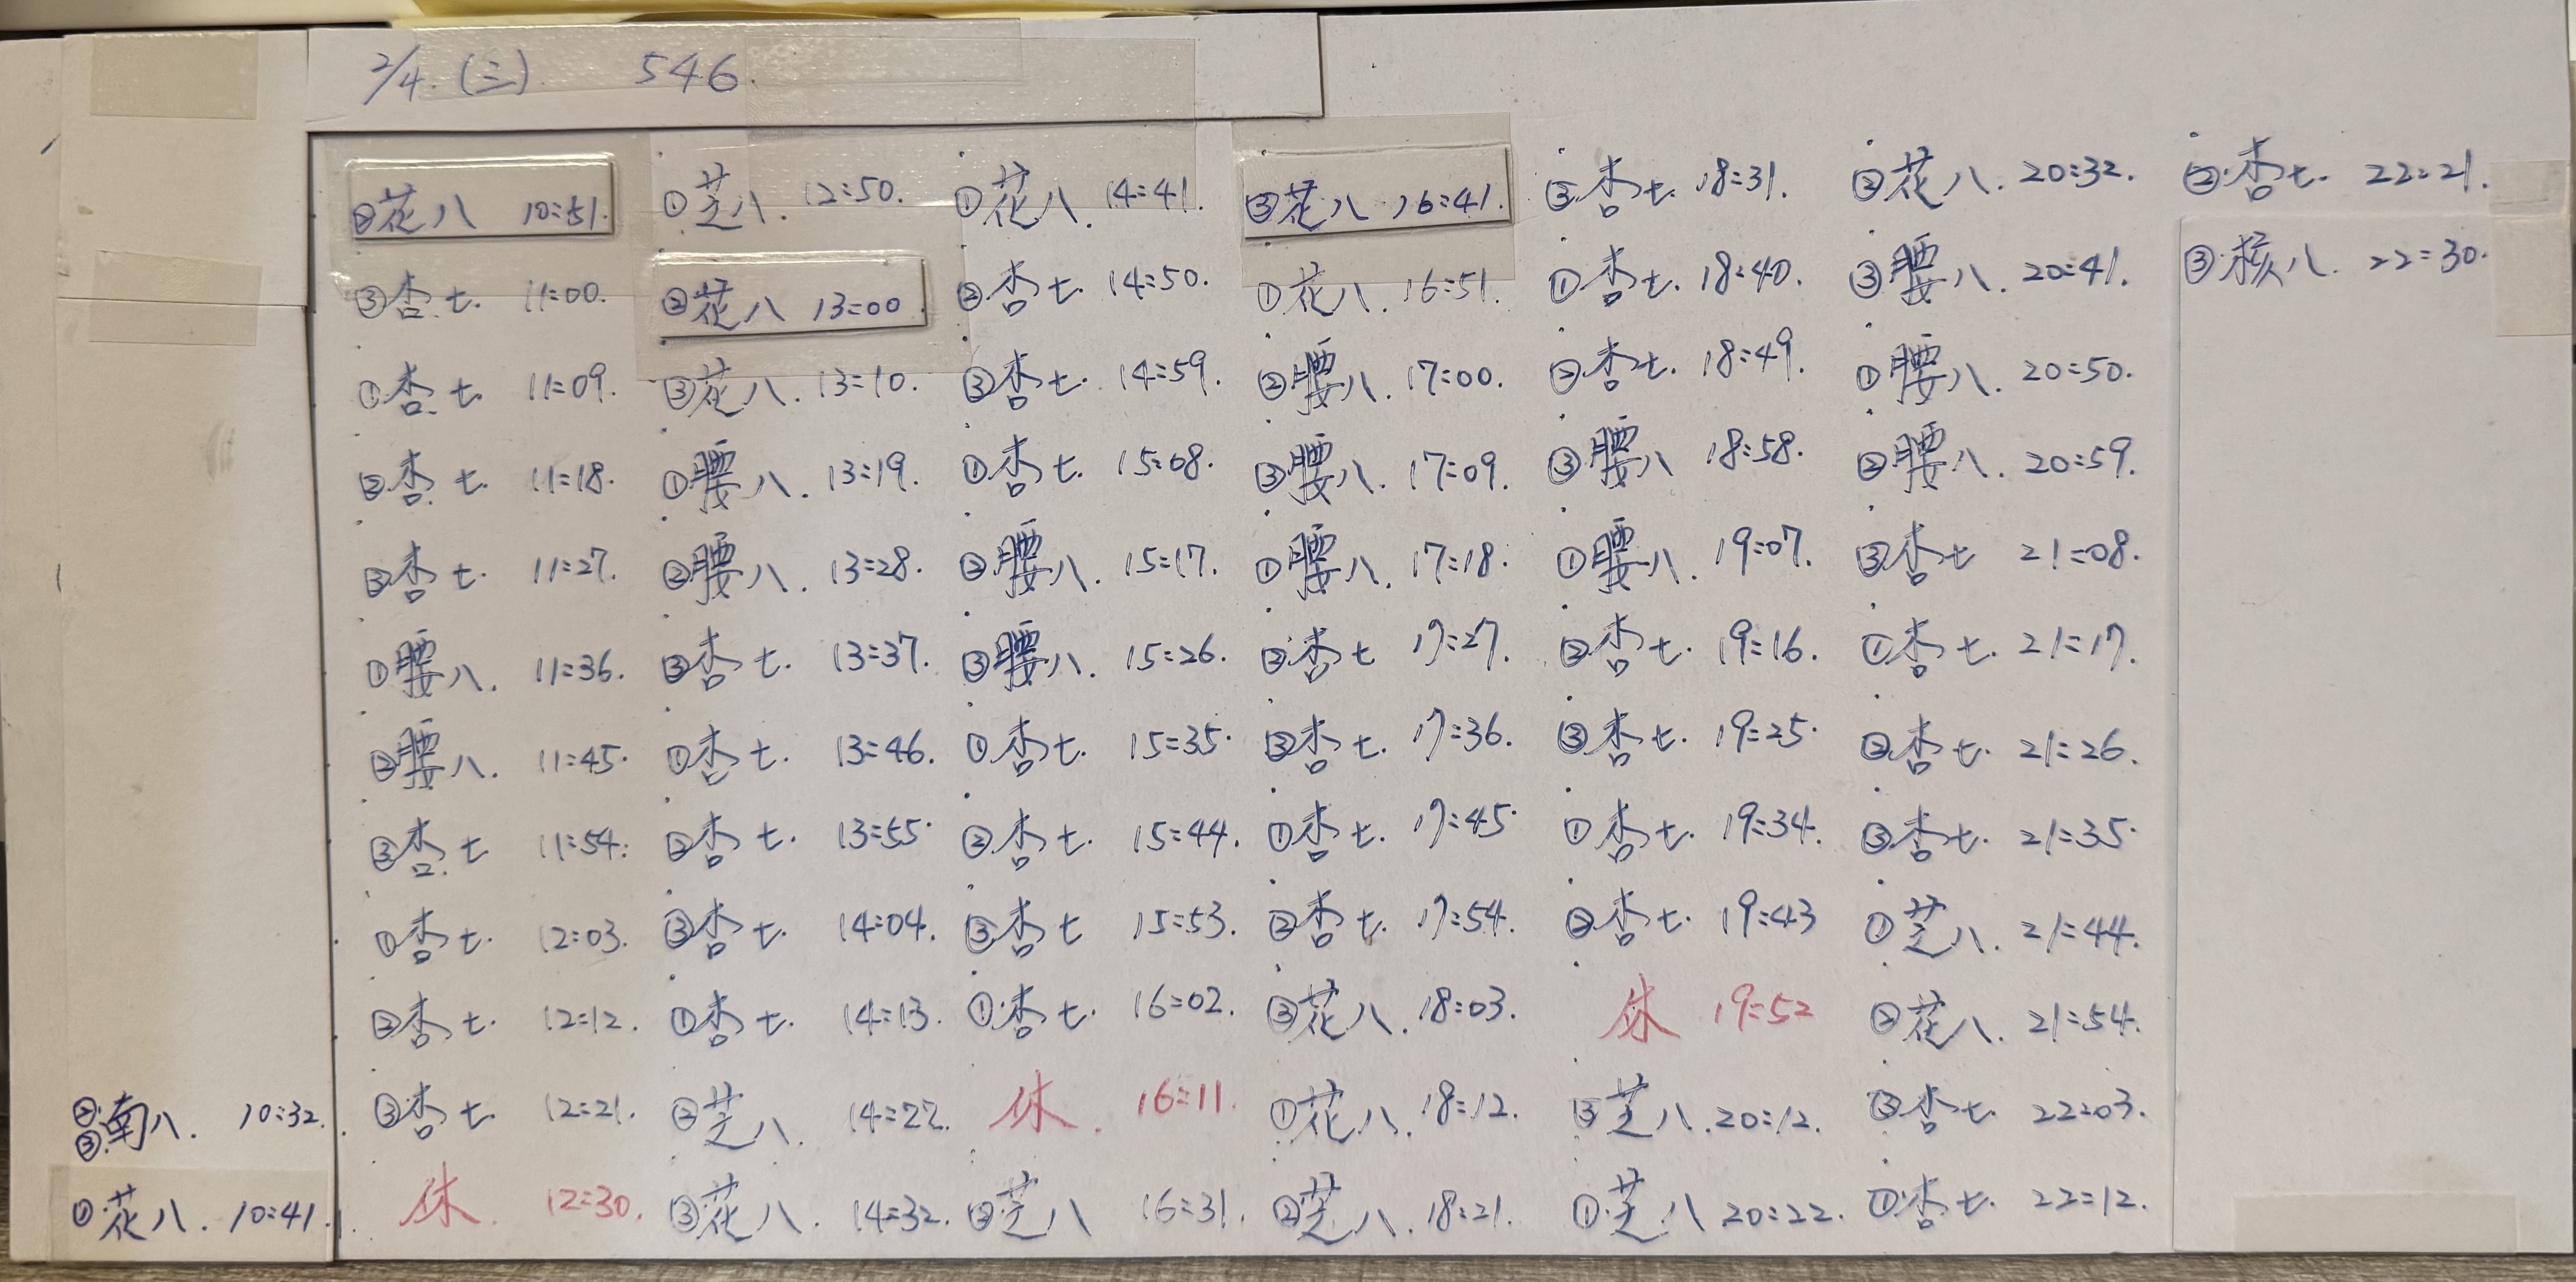 2/4.(三). 546.
②③南八. 10:32.
①花八. 10:41.
②花八 10:51.
③杏七. 11:00.
①杏七 11:09.
②杏七. 11:18.
③杏七. 11:27.
①腰八. 11:36.
②腰八. 11:45.
③杏七 11:54.
①杏七. 12:03.
②杏七. 12:12.
③杏七 12:21.
休. 12:30.
①芝八. 12:50.
②花八 13:00.
③花八. 13:10.
①腰八. 13:19.
②腰八. 13:28.
③杏七. 13:37.
①杏七. 13:46.
②杏七. 13:55.
③杏七. 14:04.
①杏七. 14:13.
②芝八. 14:22.
③花八. 14:32.
①花八. 14:41.
②杏七. 14:50.
③杏七. 14:59.
①杏七. 15:08.
②腰八. 15:17.
③腰八. 15:26.
①杏七. 15:35.
②杏七. 15:44.
③杏七 15:53.
①杏七. 16:02.
休. 16:11.
②芝八 16:31.
③花八 16:41.
①花八. 16:51.
②腰八. 17:00.
③腰八. 17:09.
①腰八. 17:18.
②杏七 17:27.
③杏七. 17:36.
①杏七. 17:45.
②杏七. 17:54.
③花八. 18:03.
①花八. 18:12.
②芝八. 18:21.
③杏七. 18:31.
①杏七. 18:40.
②杏七. 18:49.
③腰八 18:58.
①腰八. 19:07.
②杏七. 19:16.
③杏七. 19:25.
①杏七. 19:34.
②杏七. 19:43
休 19:52
③芝八. 20:12.
①芝八 20:22.
②花八. 20:32.
③腰八. 20:41.
①腰八. 20:50.
②腰八. 20:59.
③杏七 21:08.
①杏七. 21:17.
②杏七. 21:26.
③杏七. 21:35.
①芝八. 21:44.
②花八. 21:54.
③杏七. 22:03.
①杏七. 22:12.
②杏七. 22:21.
③核八. 22:30.